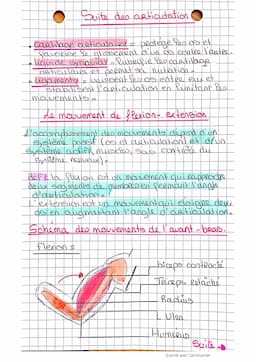 Suite des articulation
• Cartilage articulaire = protège les os et
favorise le glissement d'un os contre l'autre.
• liquide synovial = lubrifie les cartilages
articulaires et permet sa nutrition.
• ligaments = unissent les os entre eux et
stabilisent l'articulation en limitant les
mouvements.
Le mouvement de flexion-extension
L'accomplissement des mouvements dépend d'un
système passif (os et articulation) et d'un
système actif (muscles, sous contrôle du
système nerveux).
DEF: la flexion est un mouvement qui rapproche
deux segments de membres en fermant l'angle
d'articulation.
L'extension est un mouvement qui éloigne deux
os en augmentant l'angle d'articulation.
Schéma des mouvements de l'avant-bras.
Flexion :
biceps contracté
Triceps relâché
Radius
L Ulna
Humérus
Suite
Scanné avec CamScanner